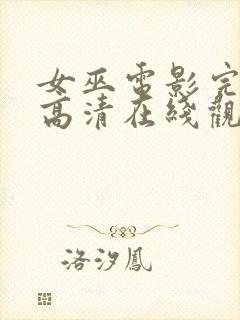 女巫電影完
高清在綫觀
洛汐鳳